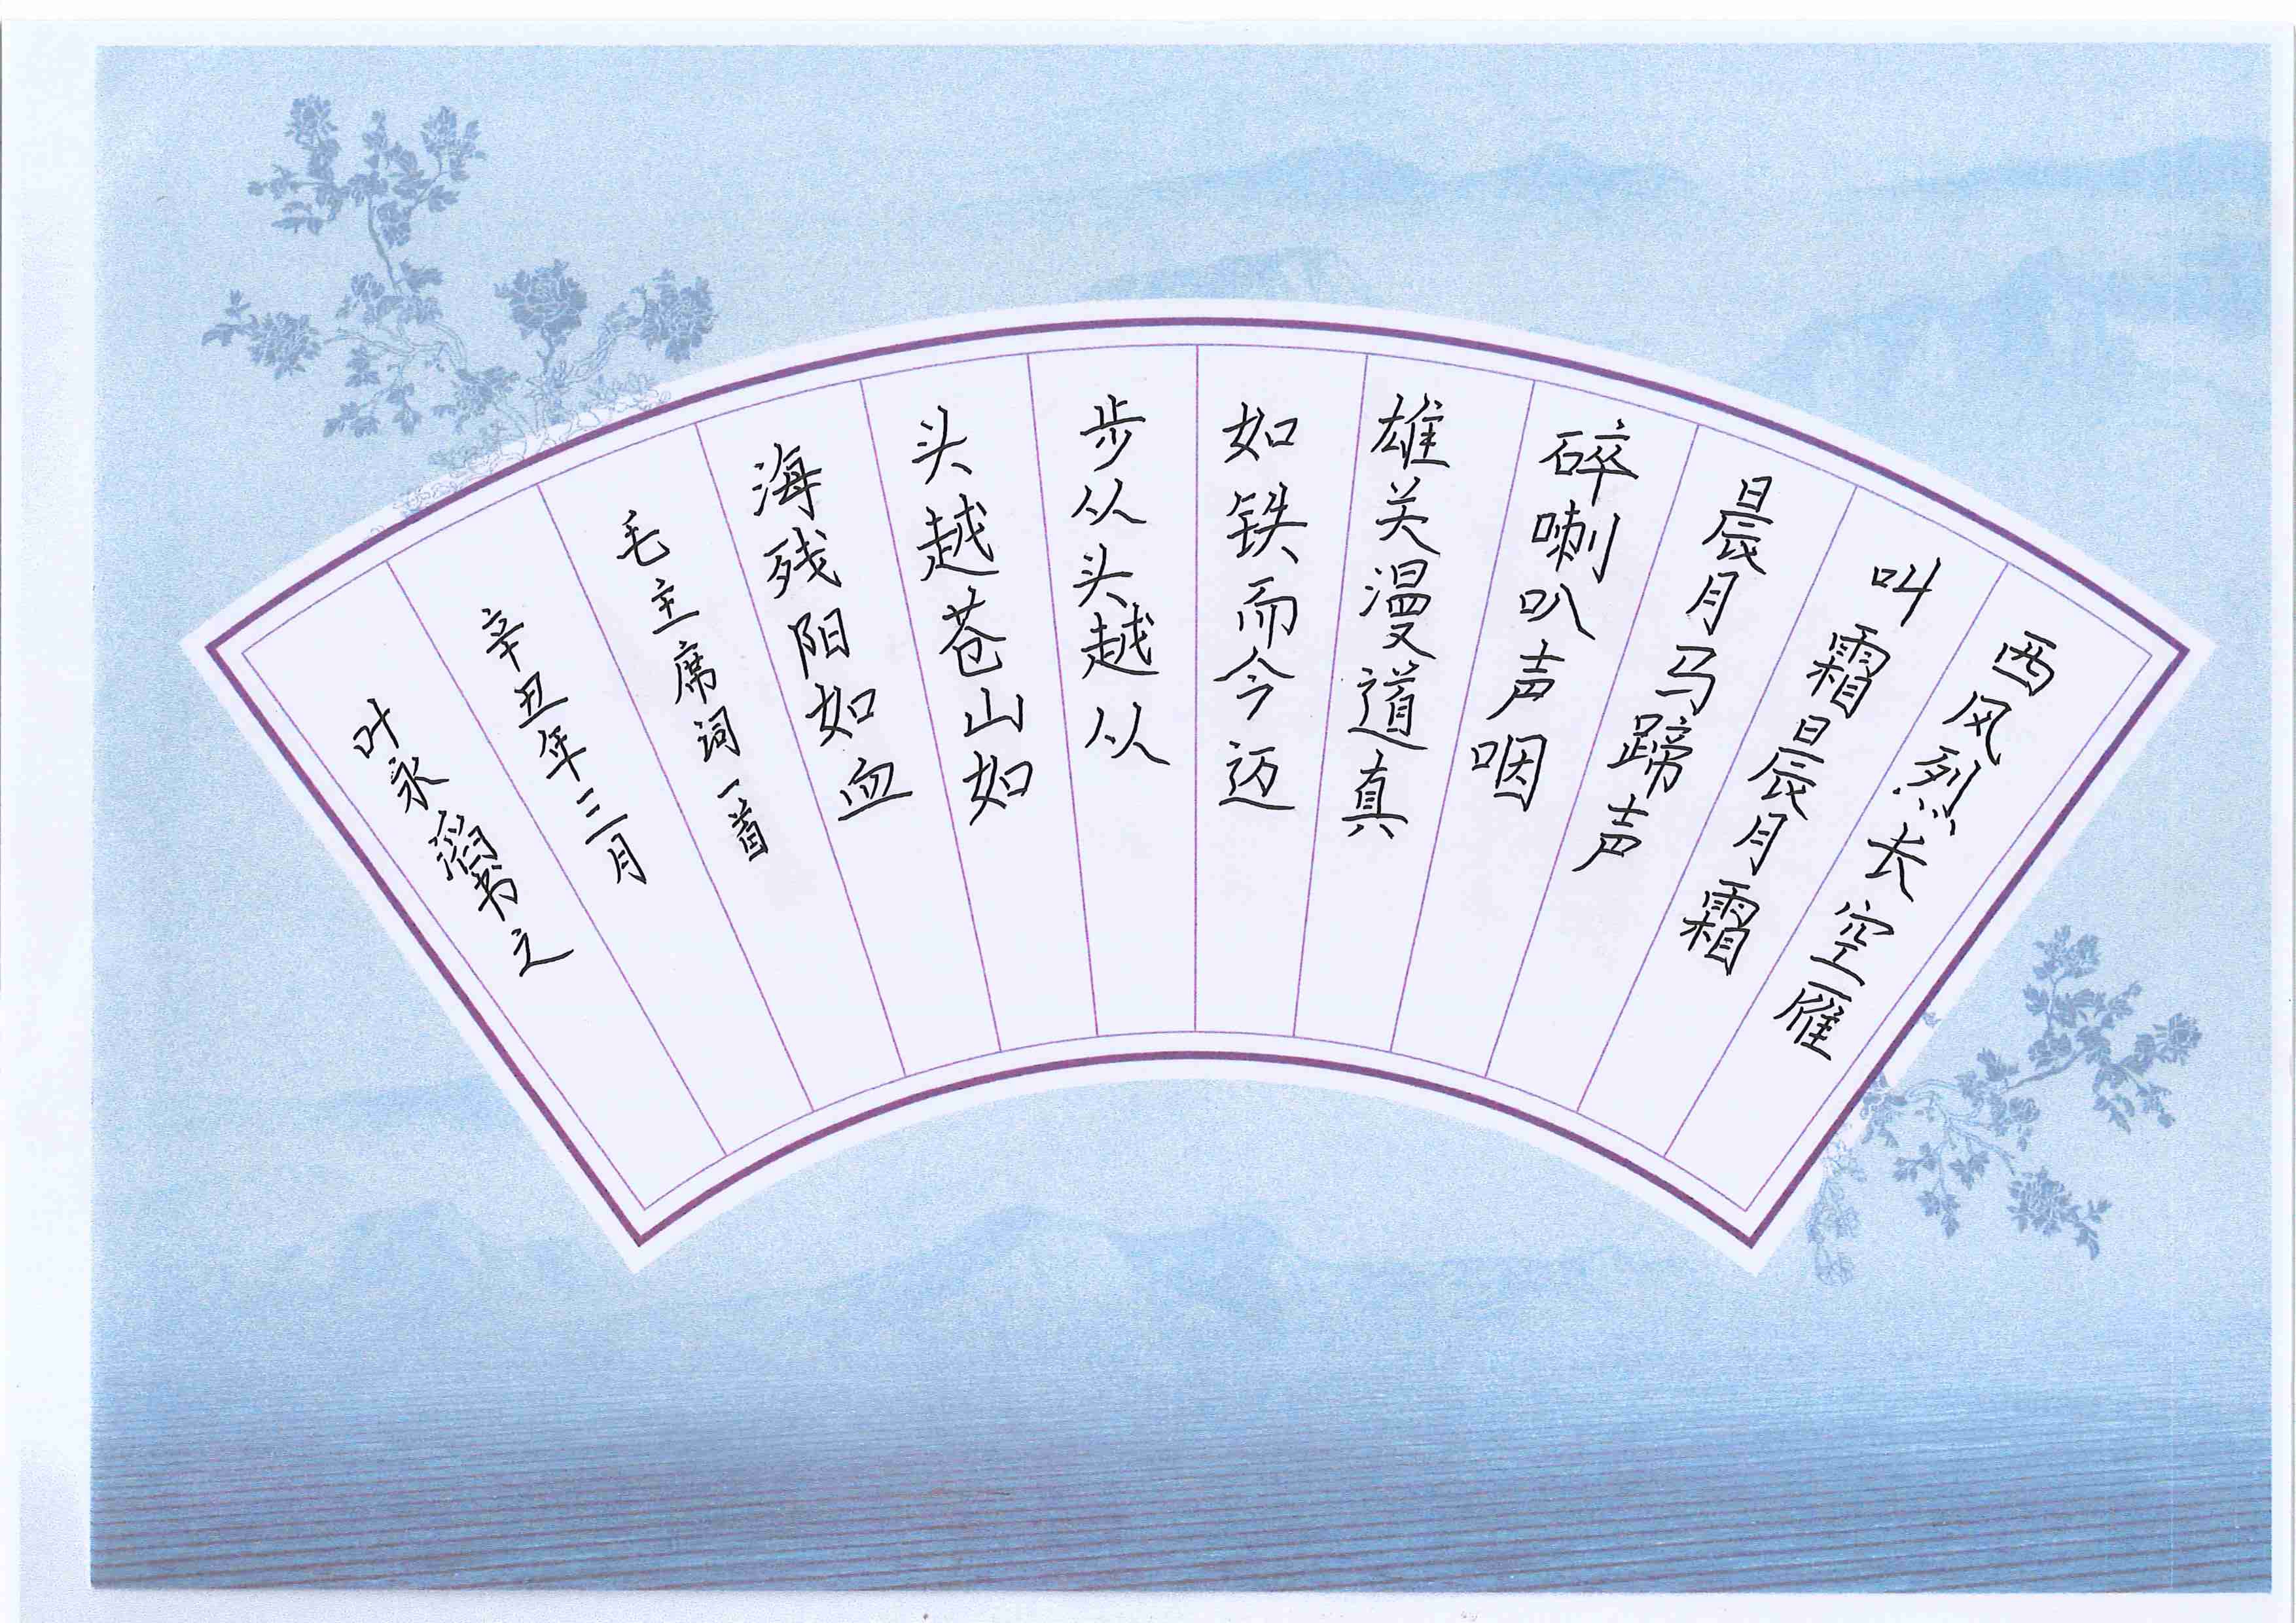 西风烈长空雁
叫霜晨月霜
晨月马蹄声
碎喇叭声咽
雄关漫道真
如铁而今迈
步从头越从
头越苍山如
海残阳如血
毛主席词一首
辛丑年三月
叶永滔书之